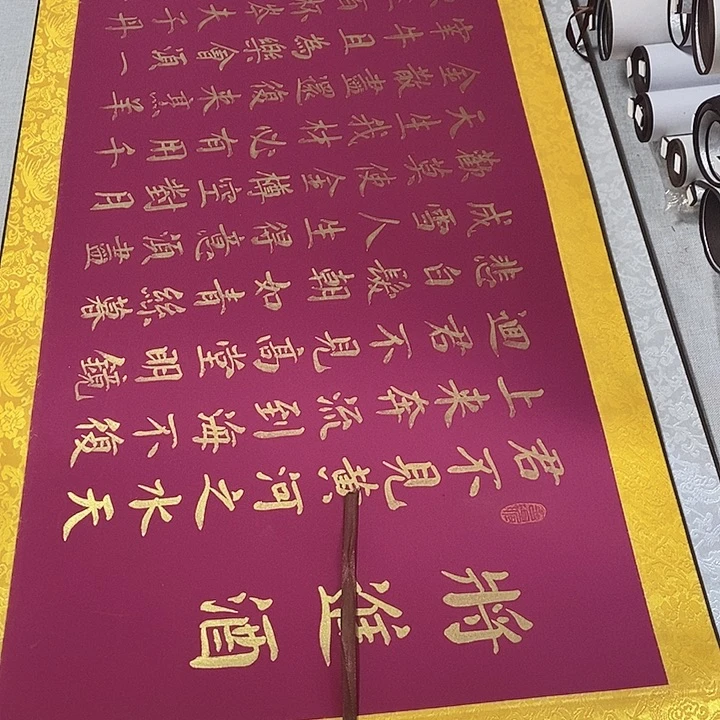 將進酒
君不見黃河之水天
上来奔流到海不復
迴君不見高堂明鏡
悲白髮朝如青絲暮
成雪人生得意須盡
歡莫使金樽空對月
天生我材必有用千
金散盡還復来烹羊
宰牛且為樂會須一
百杯岑夫子丹